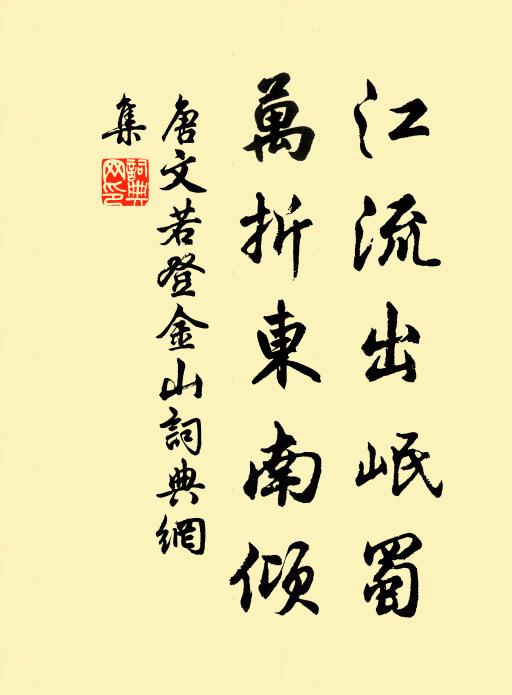 江流出岷蜀
萬折東南傾
唐文若登金山詞典網
集
詞典網印